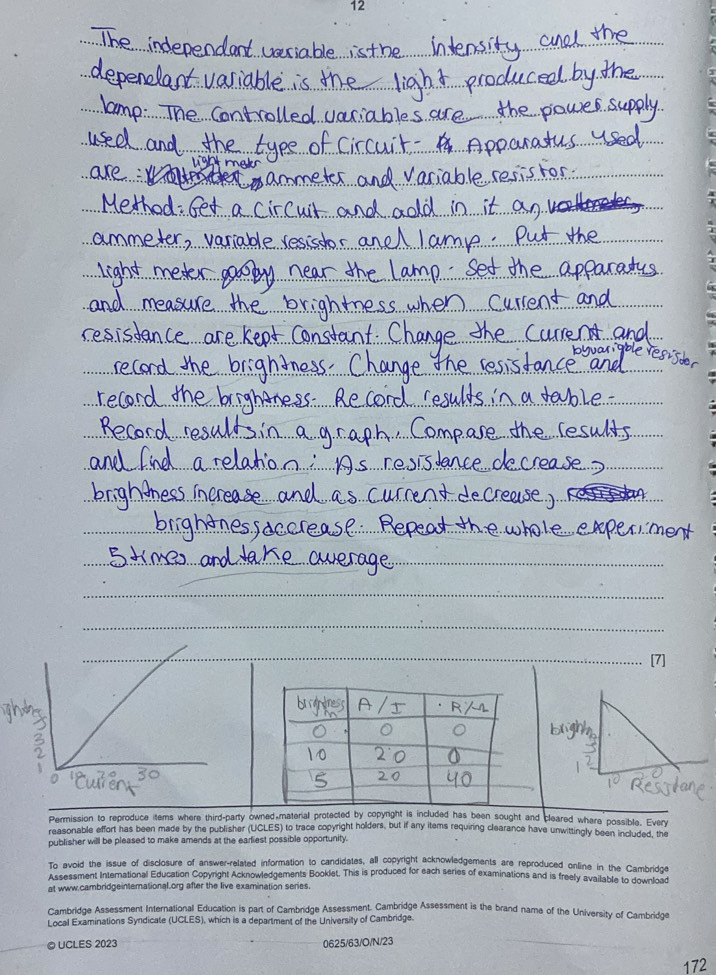 12
The independant variable is the intensity and the
dependant variable is the light produced by the
lamp. The controlled variables are the power supply
used and the type of circuit. Apparatus used
light meter
are : ammeter and variable resistor.
Method: Get a circuit and add in it an voltmeter,
ammeter, variable resistor and lamp. Put the
light meter near the lamp. Set the apparatus
and measure the brightness when current and
resistance are kept constant. Change the current and
by variable resistor
record the brightness. Change the resistance and
record the brightness. Record results in a table.
Record results in a graph. Compare the results
and find a relation : As resistance decrease,
brightness increase and as current decrease,
brightness decrease. Repeat the whole experiment
5 times and take average
[7]
brightness A/I R/Ω
0 0 0
10 20 0
5 20 40
3
2
1
0 10 20 30
Current
brightn
3
2
1
10 20
Resistane
Permission to reproduce items where third-party owned material protected by copyright is included has been sought and cleared where possible. Every
reasonable effort has been made by the publisher (UCLES) to trace copyright holders, but if any items requiring clearance have unwittingly been included, the
publisher will be pleased to make amends at the earliest possible opportunity.
To avoid the issue of disclosure of answer-related information to candidates, all copyright acknowledgements are reproduced online in the Cambridge
Assessment International Education Copyright Acknowledgements Booklet. This is produced for each series of examinations and is freely available to download
at www.cambridgeinternational.org after the live examination series.
Cambridge Assessment International Education is part of Cambridge Assessment. Cambridge Assessment is the brand name of the University of Cambridge
Local Examinations Syndicate (UCLES), which is a department of the University of Cambridge.
© UCLES 2023
0625/63/O/N/23
172